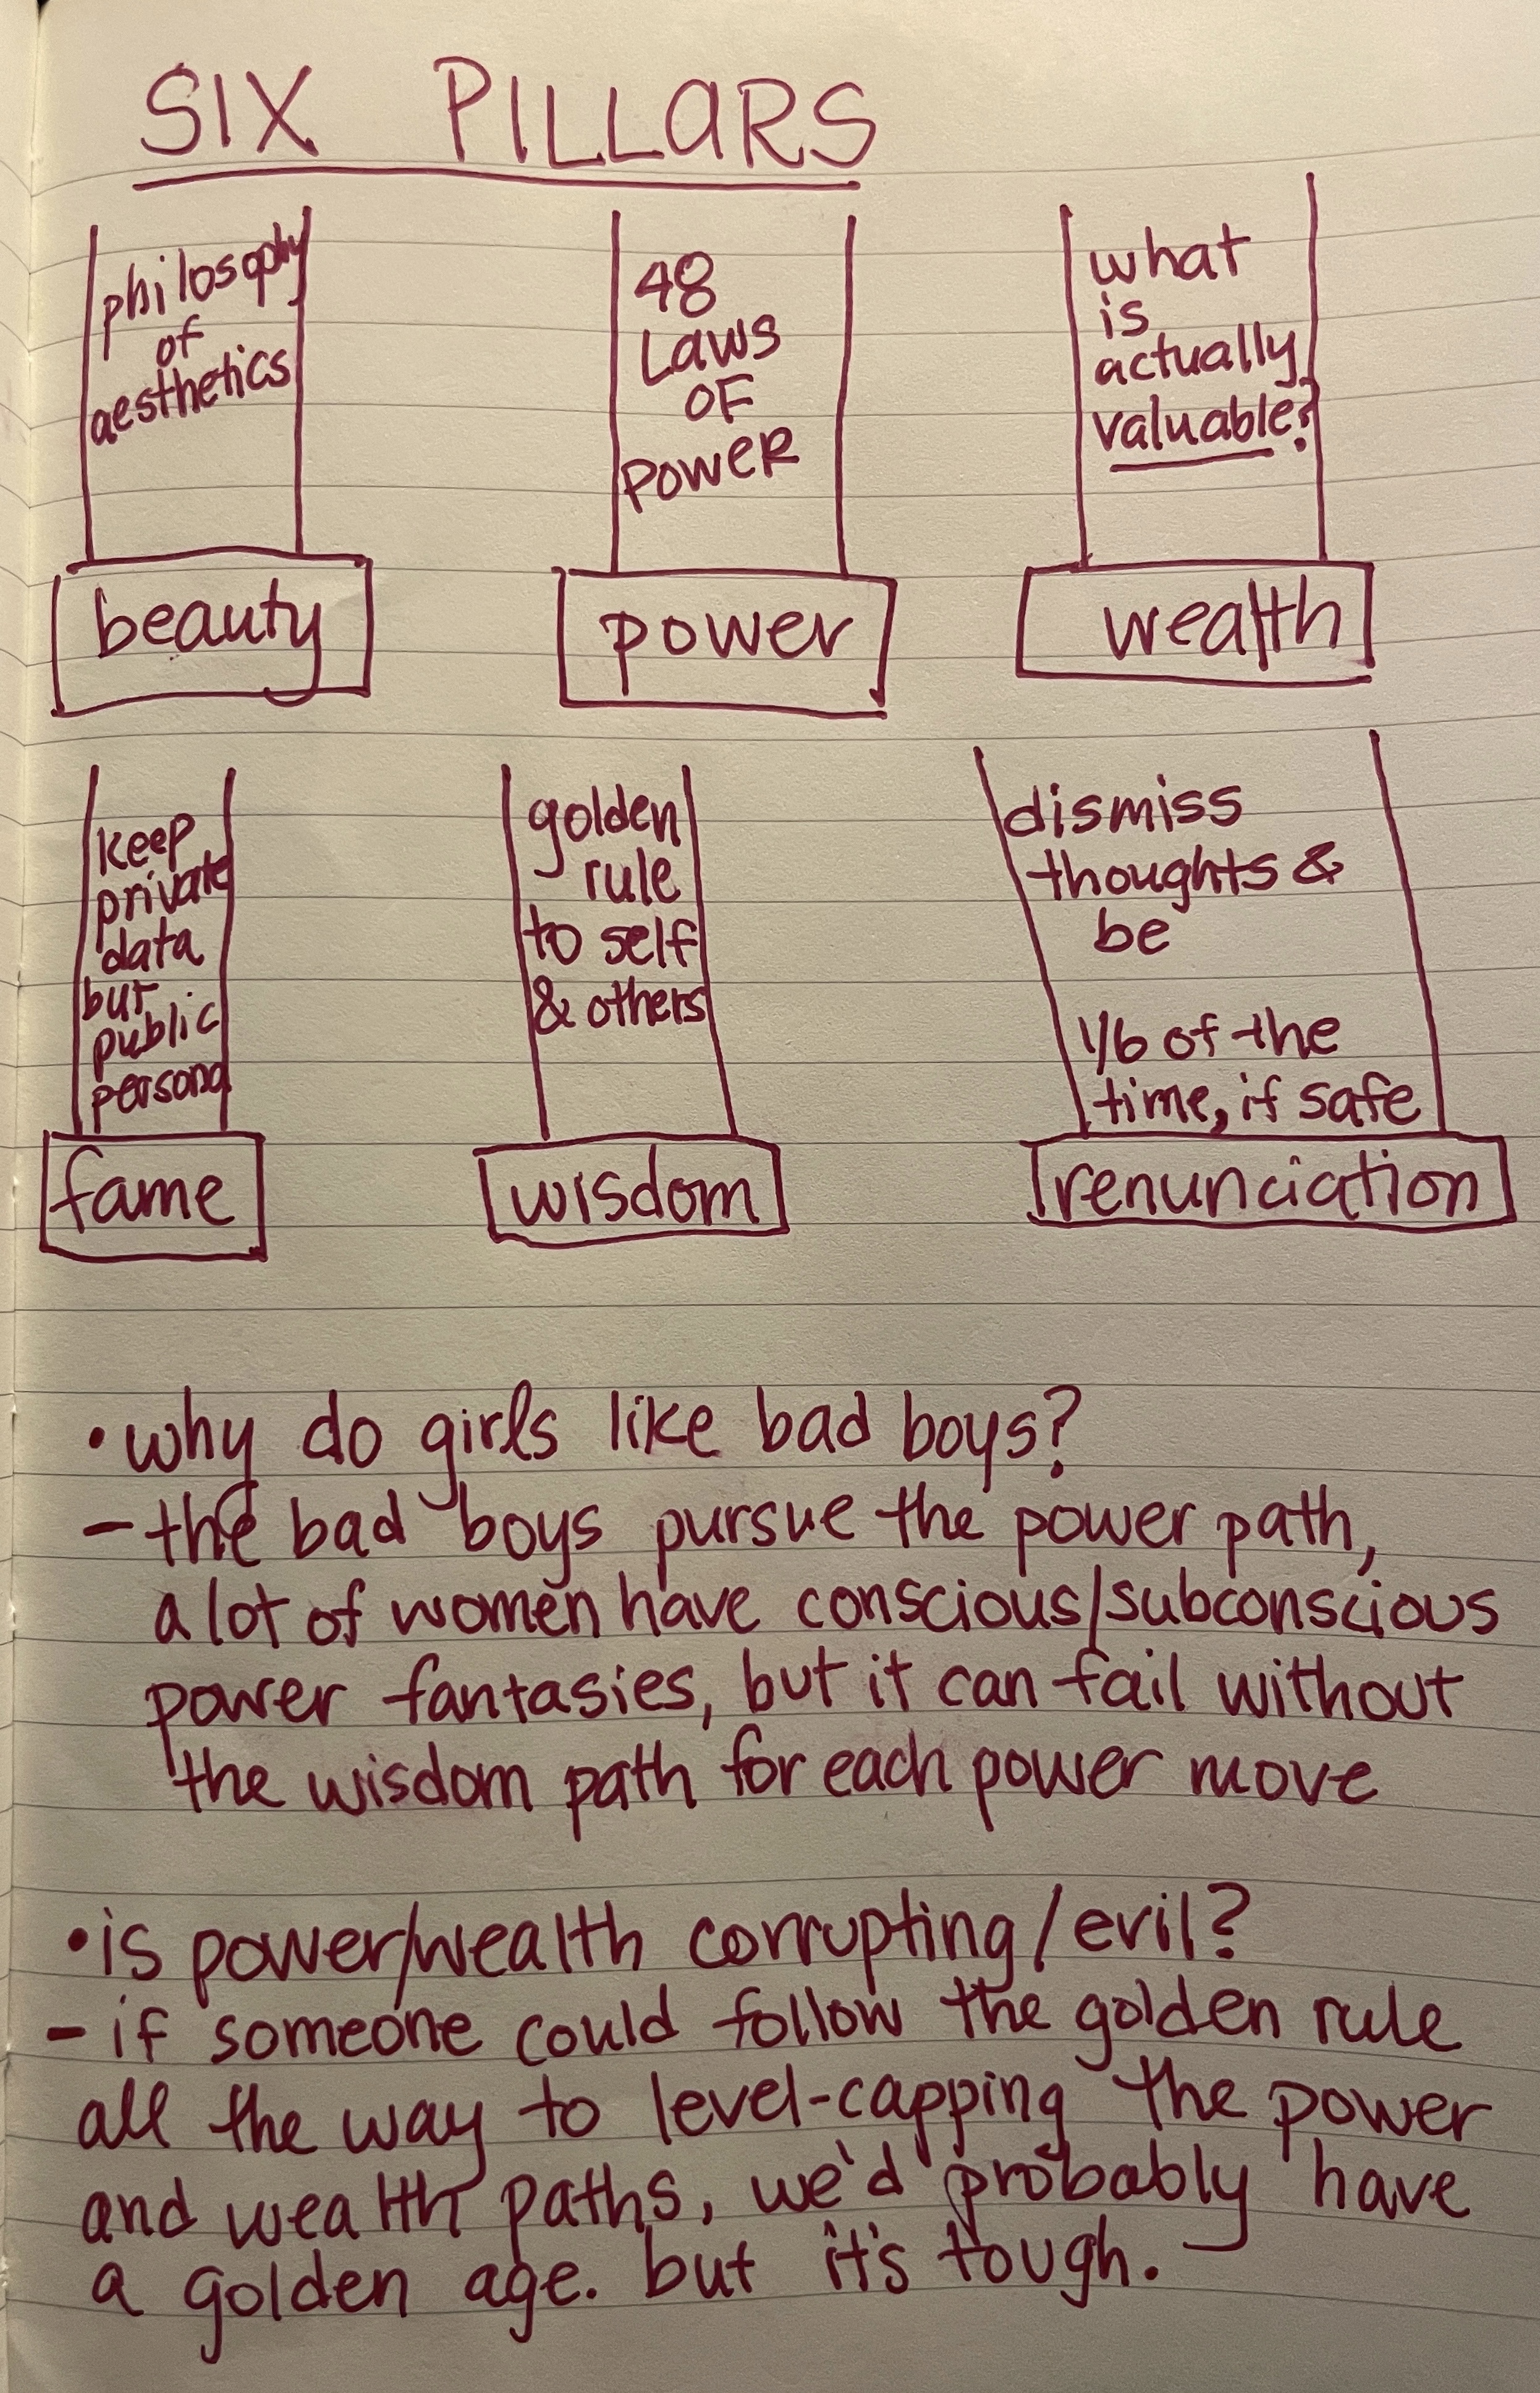 SIX PILLARS
philosophy
of
aesthetics
beauty
48
LAWS
OF
POWER
power
what
is
actually
valuable?
wealth
keep
private
data
but
public
persona
fame
golden
rule
to self
& others
wisdom
dismiss
thoughts &
be
1/6 of the
time, if safe
renunciation
•why do girls like bad boys?
– the bad boys pursue the power path,
a lot of women have conscious/subconscious
power fantasies, but it can fail without
the wisdom path for each power move
•is power/wealth corrupting/evil?
– if someone could follow the golden rule
all the way to level-capping the power
and wealth paths, we'd probably have
a golden age. but it's tough.